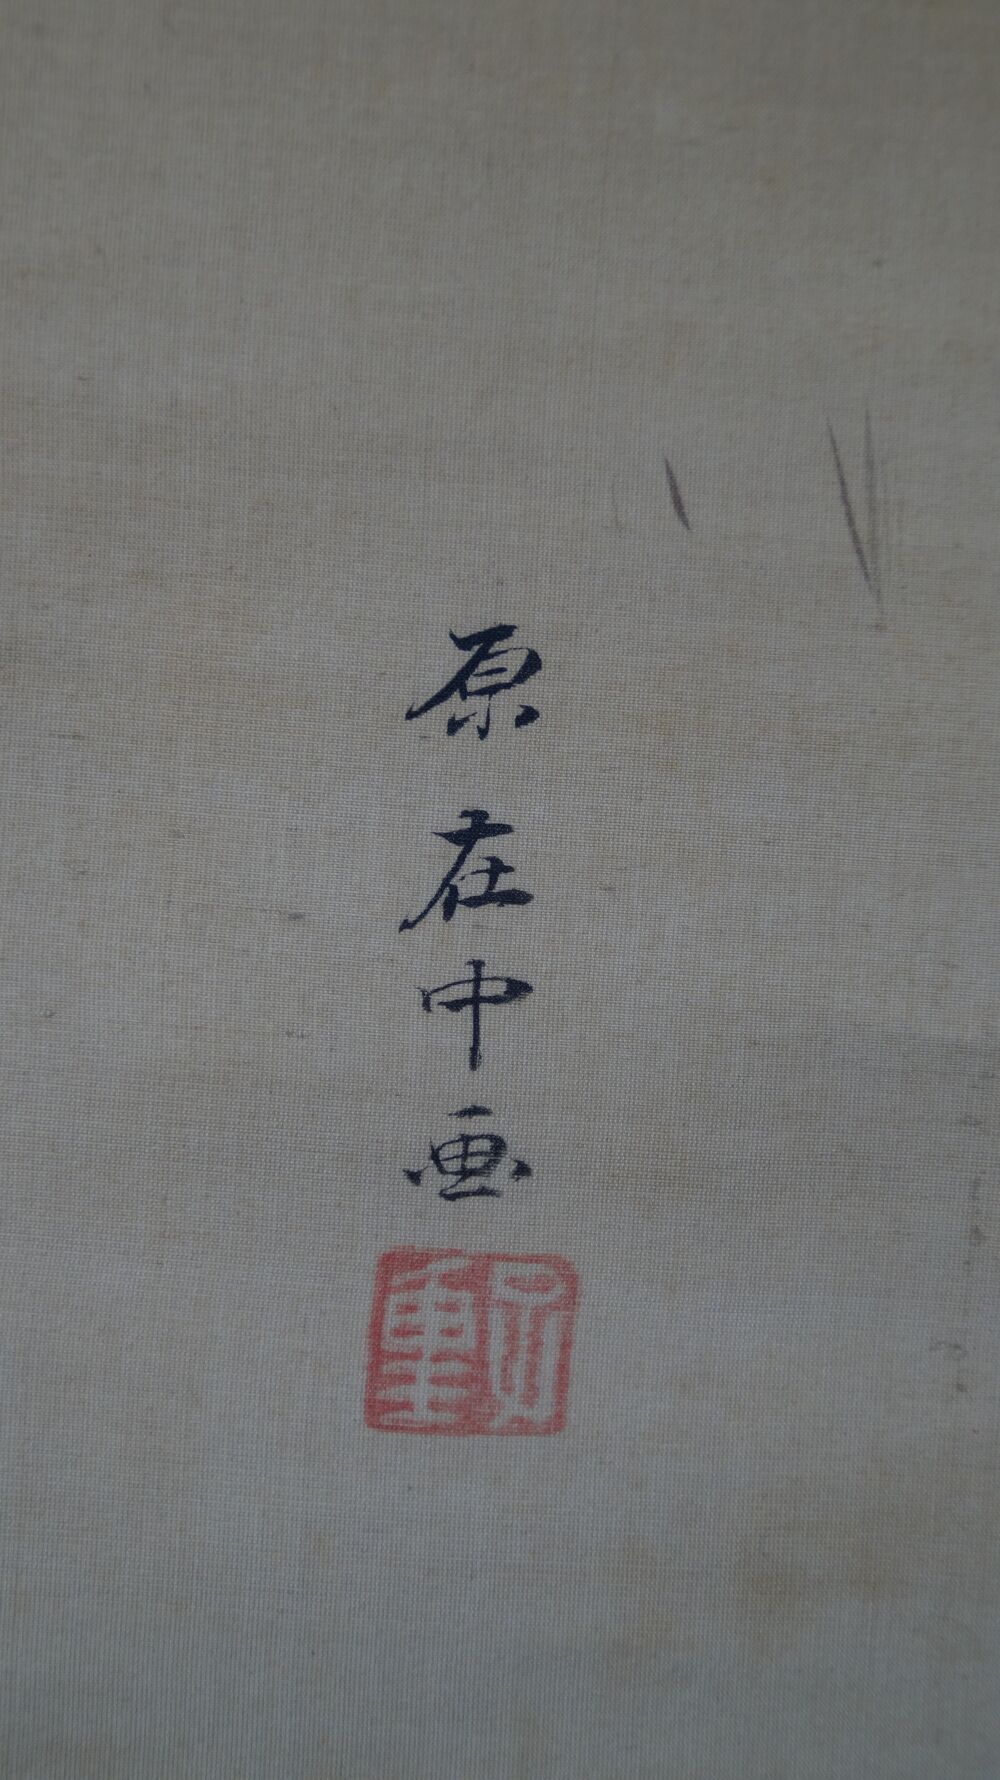 原在中画